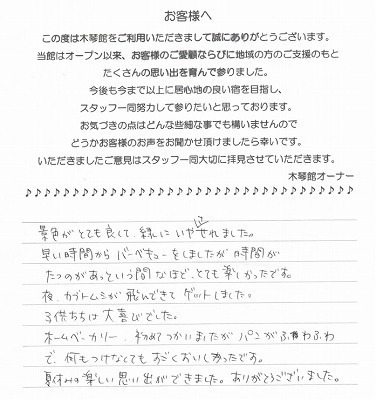 お客様へ
この度は木琴館をご利用いただきまして誠にありがとうございます。
当館はオープン以来、お客様のご愛顧ならびに地域の方のご支援のもと
たくさんの思い出を育んで参りました。
今後も今まで以上に居心地の良い宿を目指し、
スタッフ一同努力して参りたいと思っております。
お気づきの点はどんな些細な事でも構いませんので
どうかお客様のお声をお聞かせ頂けましたら幸いです。
いただきましたご意見はスタッフ一同大切に拝見させていただきます。
木琴館オーナー
♪♪♪♪♪♪♪♪♪♪♪♪♪♪♪♪♪♪♪♪♪♪♪♪♪♪♪♪♪♪
景色がとても良くて、緑にいやされました。
早い時間からバーベキューをしましたが時間が
たつのがあっという間なほど、とても楽しかったです。
夜、カブトムシが飛んできてゲットしました。
子供たちは大喜びでした。
ホームベーカリー、初めてつかいましたがパンがふわふわ
で、何もつけなくてもすごくおいしかったです。
夏休みの楽しい思い出ができました。ありがとうございました。